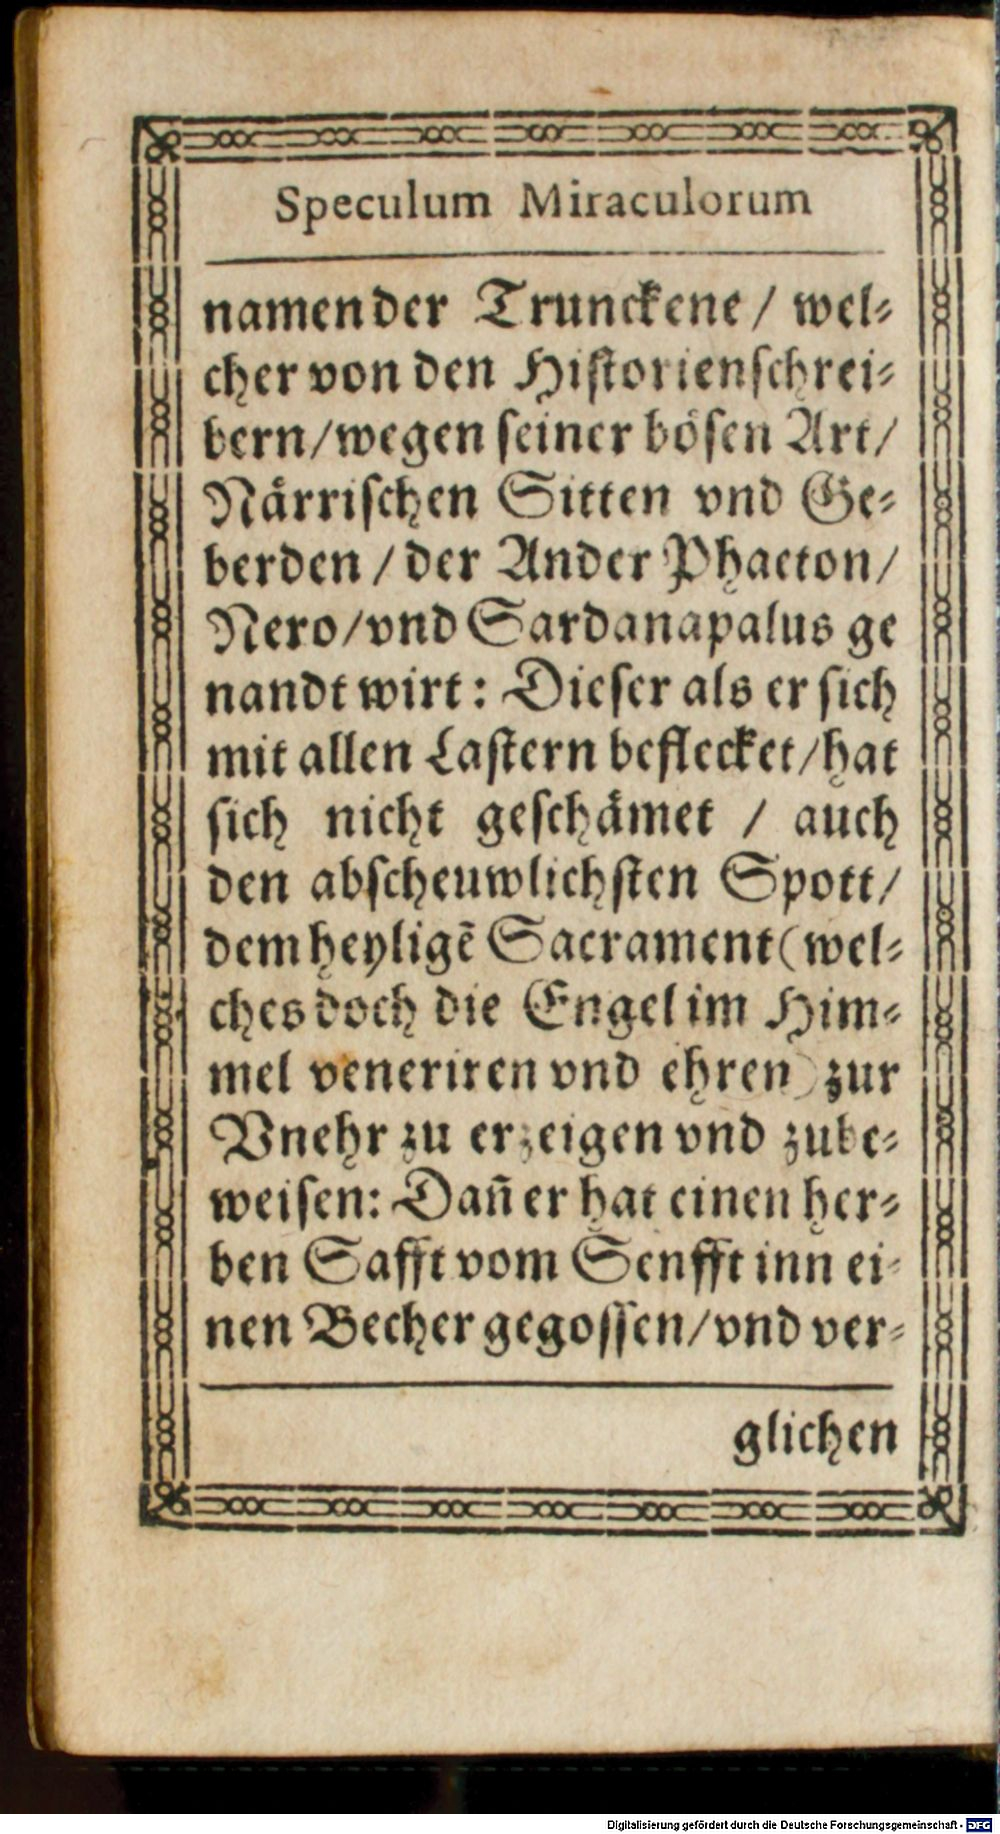 Speculum Miraculorum
namen der Trunckene / wel⸗
cher von den Historienschrei⸗
bern/wegen seiner bösen Art/
Närrischen Sitten vnd Ge⸗
berden / der Ander Phaeton/
Nero/vnd Sardanapalus ge
nandt wirt: Dieser als er sich
mit allen Lastern beflecket/hat
sich nicht geschämet / auch
den abscheuwlichsten Spott/
dem heyligē Sacrament (wel⸗
ches doch die Engel im Him⸗
mel veneriren vnd ehren) zur
Vnehr zu erzeigen vnd zube⸗
weisen: Dañ er hat einen her⸗
ben Safft vom Senfft inn ei⸗
nen Becher gegossen/vnd ver⸗
glichen
Digitalisierung gefördert durch die Deutsche Forschungsgemeinschaft - DFG